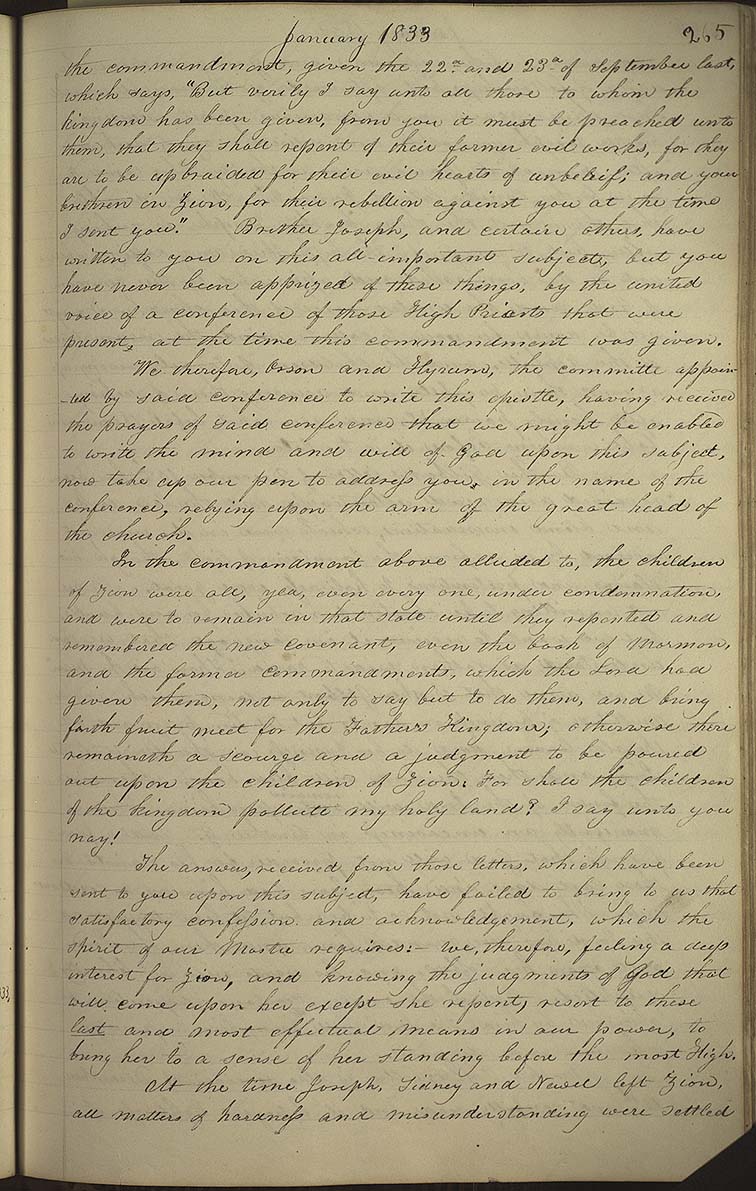 January 1833 265
the commandment, given the 22nd and 23d of September last,
which says, "But verily I say unto all those to whom the
kingdom has been given, from you it must be preached unto
them, that they shall repent of their former evil works, for they
are to be upbraided for their evil hearts of unbeleif; and your
brethren in Zion, for their rebellion against you at the time
I sent you." Brother Joseph, and certain others, have
written to you on this all-important subject, but you
have never been apprized of these things, by the united
voice of a conference of those High Priests that were
present, at the time this commandment was given.
We therefore, Orson and Hyrum, the committe appoin-
-ted by said conference to write this epistle, having received
the prayers of said conference that we might be enabled
to write the mind and will of God upon this subject,
now take up our pen to address you, in the name of the
conference, relying upon the arm of the great head of
the church.
In the commandment above alluded to, the children
of Zion were all, yea, even every one, under condemnation,
and were to remain in that state until they repented and
remembered the new covenant, even the book of Mormon,
and the former commandments, which the Lord had
given them, not only to say but to do them, and bring
forth fruit meet for the Father's Kingdom; otherwise there
remaineth a scourge and a judgment to be poured
out upon the children of Zion: For shall the children
of the kingdom pollute my holy land? I say unto you
nay!
The answers, received from those letters, which have been
sent to you upon this subject, have failed to bring to us that
satisfactory confession and acknowledgement, which the
spirit of our Master requires:- we, therefore, feeling a deep
interest for Zion, and knowing the judgments of God that
will come upon her except she repent, resort to these
last and most effectual means in our power, to
bring her to a sense of her standing before the most High.
At the time Joseph, Sidney and Newel left Zion,
all matters of hardness and misunderstanding were settled